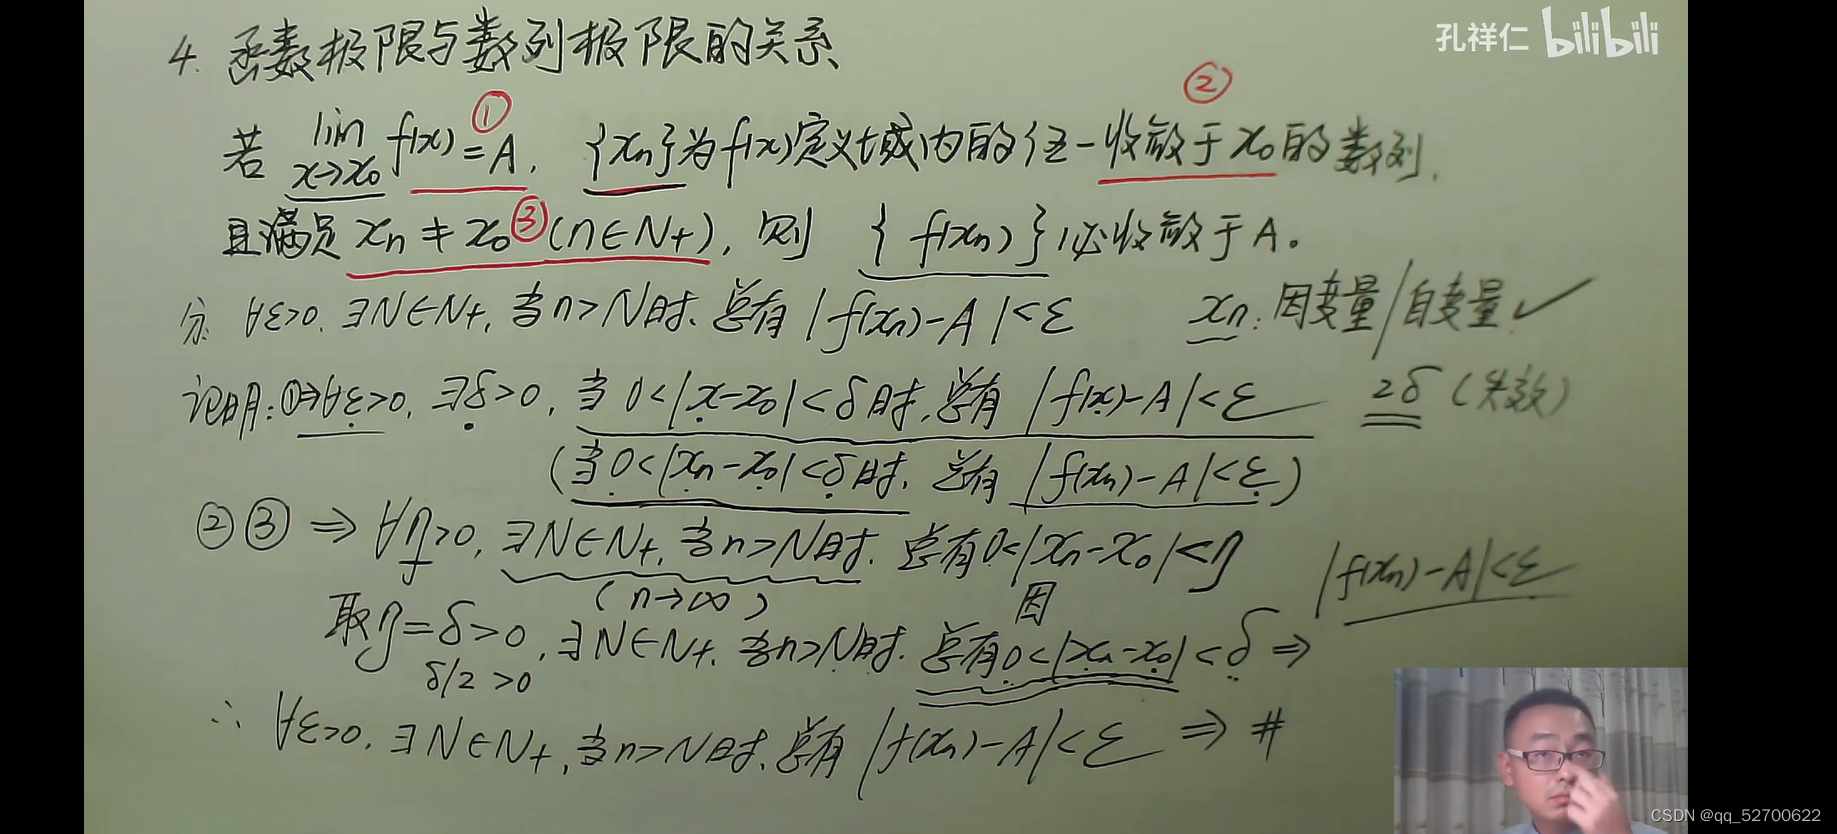 孔祥仁 bilibili
4. 函数极限与数列极限的关系
① ②
若 lim x→x₀ f(x)=A, {xₙ}为f(x)定义域内的任一收敛于x₀的数列,
且满足 xₙ≠x₀ ③ (n∈N+), 则 {f(xₙ)}必收敛于A。
分: ∀ε>0, ∃N∈N+, 当n>N时, 总有 |f(xₙ)-A|<ε xₙ: 因变量/自变量✓
证明: ①⇒∀ε>0, ∃δ>0, 当 0<|x-x₀|<δ时, 总有 |f(x)-A|<ε 2δ (失效)
(当0<|xₙ-x₀|<δ时, 总有 |f(xₙ)-A|<ε)
②③ ⇒ ∀η>0, ∃N∈N+, 当n>N时, 总有0<|xₙ-x₀|<η
(n→∞) 因 |f(xₙ)-A|<ε
取η=δ>0, ∃N∈N+, 当n>N时, 总有0<|xₙ-x₀|<δ ⇒
δ/2 >0
∴ ∀ε>0, ∃N∈N+, 当n>N时, 总有 |f(xₙ)-A|<ε ⇒ #
CSDN @qq_52700622